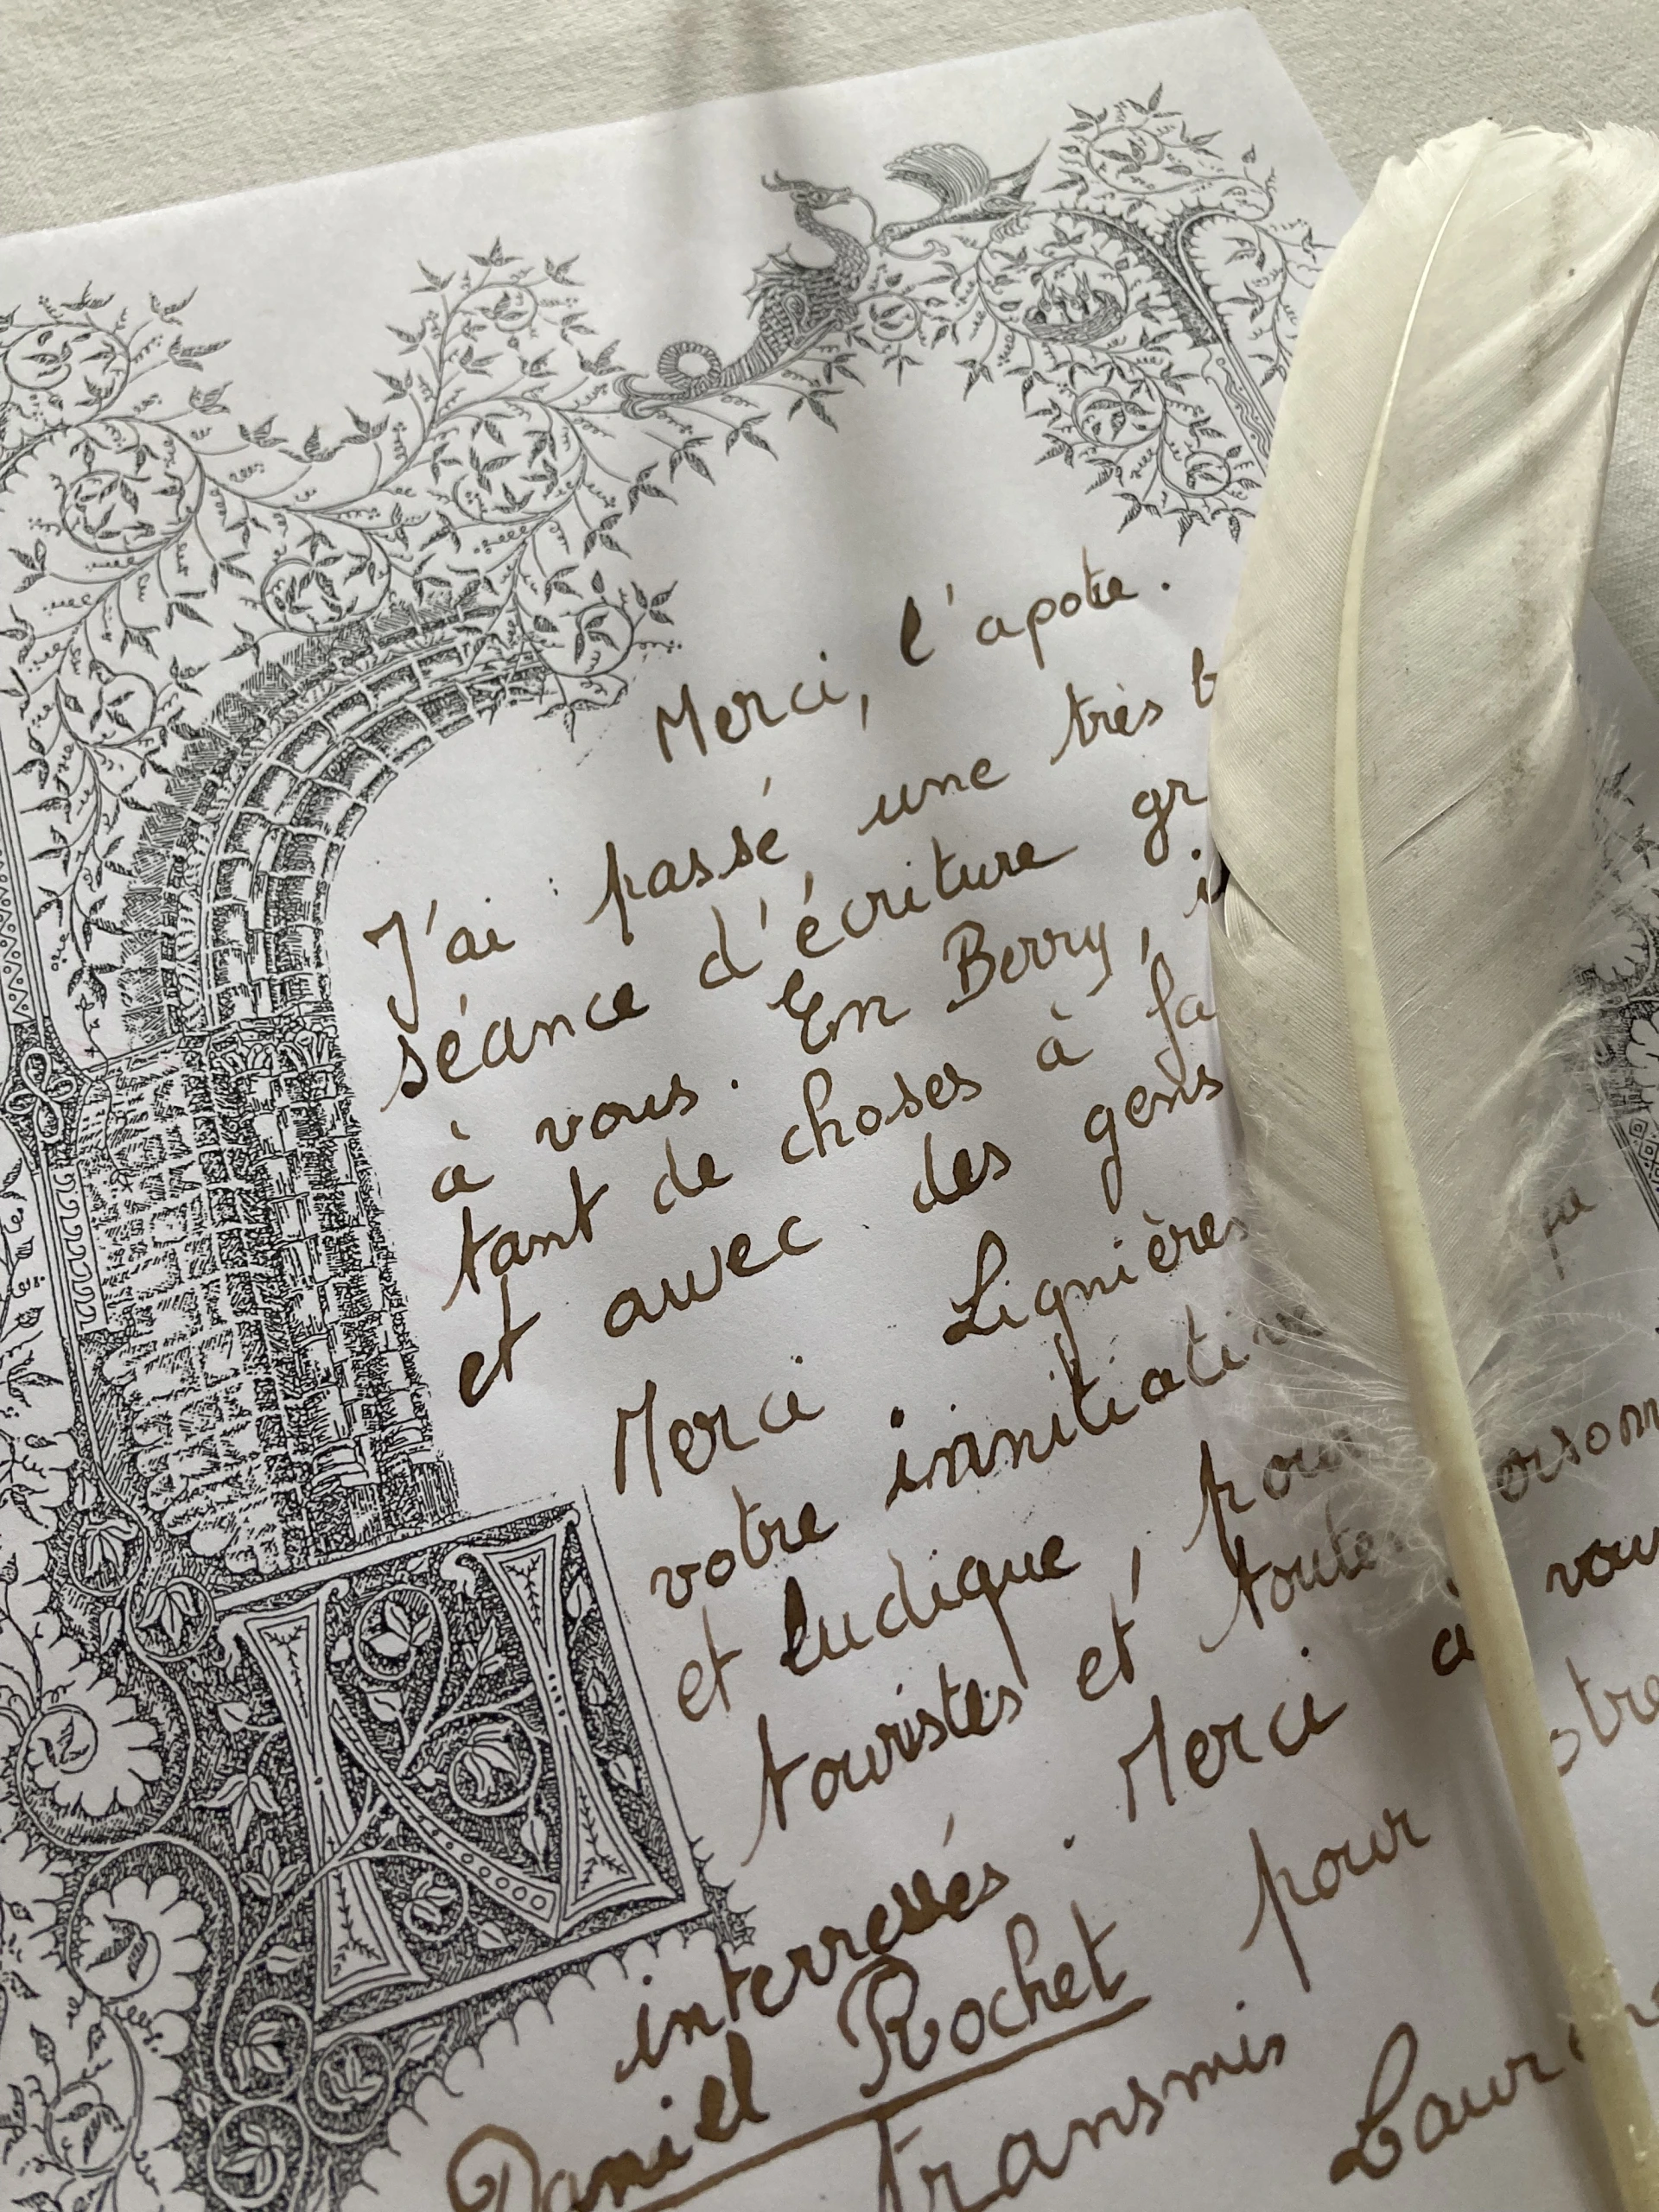 Merci, l'apotre.
J'ai passé une très b
séance d'écriture gr
à vous. En Berry, i
tant de choses à fa
et avec des gens
Merci Lignières
votre innitiative
et ludique, pour
touristes et toutes
interressés. Merci à vou
Daniel Rochet pour
transmis
N